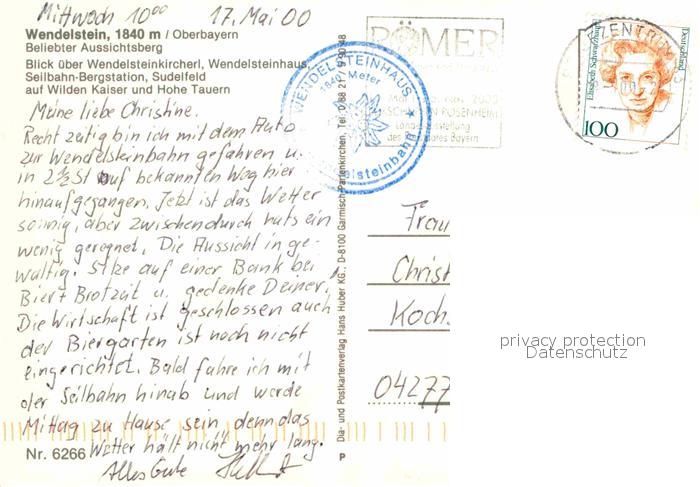 Mittwoch 10⁰⁰ 17. Mai 00
Wendelstein, 1840 m / Oberbayern
Beliebter Aussichtsberg
Blick über Wendelsteinkircherl, Wendelsteinhaus,
Seilbahn-Bergstation, Sudelfeld
auf Wilden Kaiser und Hohe Tauern
Meine liebe Christine.
Recht zeitig bin ich mit dem Auto
zur Wendelsteinbahn gefahren u.
in 2½ St auf bekannten Weg hier
hinaufgegangen. Jetzt ist das Wetter
sonnig, aber zwischendurch hats ein
wenig geregnet. Die Aussicht in ge-
waltig. Sitze auf einer Bank bei
Bier + Brotzeit u. gedenke Deiner.
Die Wirtschaft ist geschlossen auch
der Biergarten ist noch nicht
eingerichtet. Bald fahre ich mit
der Seilbahn hinab und werde
Mittag zu Hause sein denn das
Wetter hält nicht mehr lang.
Alles Gute
Nr. 6266
P
Dia- und Postkartenverlag Hans Huber KG., D-8100 Garmisch-Partenkirchen, Tel. 0 88 21 /
WENDELSTEINHAUS
1840 Meter
Wendelsteinbahn
RÖMER
2000
ROSENHEIM
Landesausstellung
des Hauses Bayern
ZENTRUM
Elisabeth Schwarzhaupt
Deutschland
100
Frau
Christ
Koch
04277
privacy protection
Datenschutz